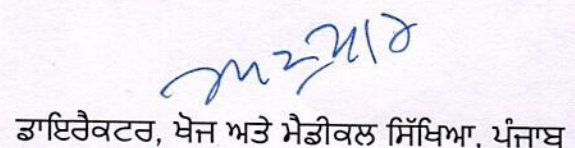 ਡਾਇਰੈਕਟਰ, ਖੋਜ ਅਤੇ ਮੈਡੀਕਲ ਸਿੱਖਿਆ, ਪੰਜਾਬ